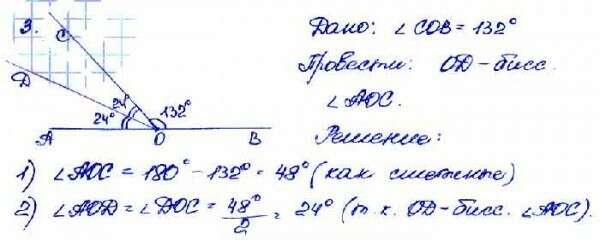 3.
C
D
24°
24°
132°
A
O
B
Дано: ∠COB = 132°
Провести: OD - бисс.
∠AOC.
Решение:
1) ∠AOC = 180° - 132° = 48° (как смежные)
2) ∠AOD = ∠DOC = 48°/2 = 24° (т.к. OD - бисс. ∠AOC).